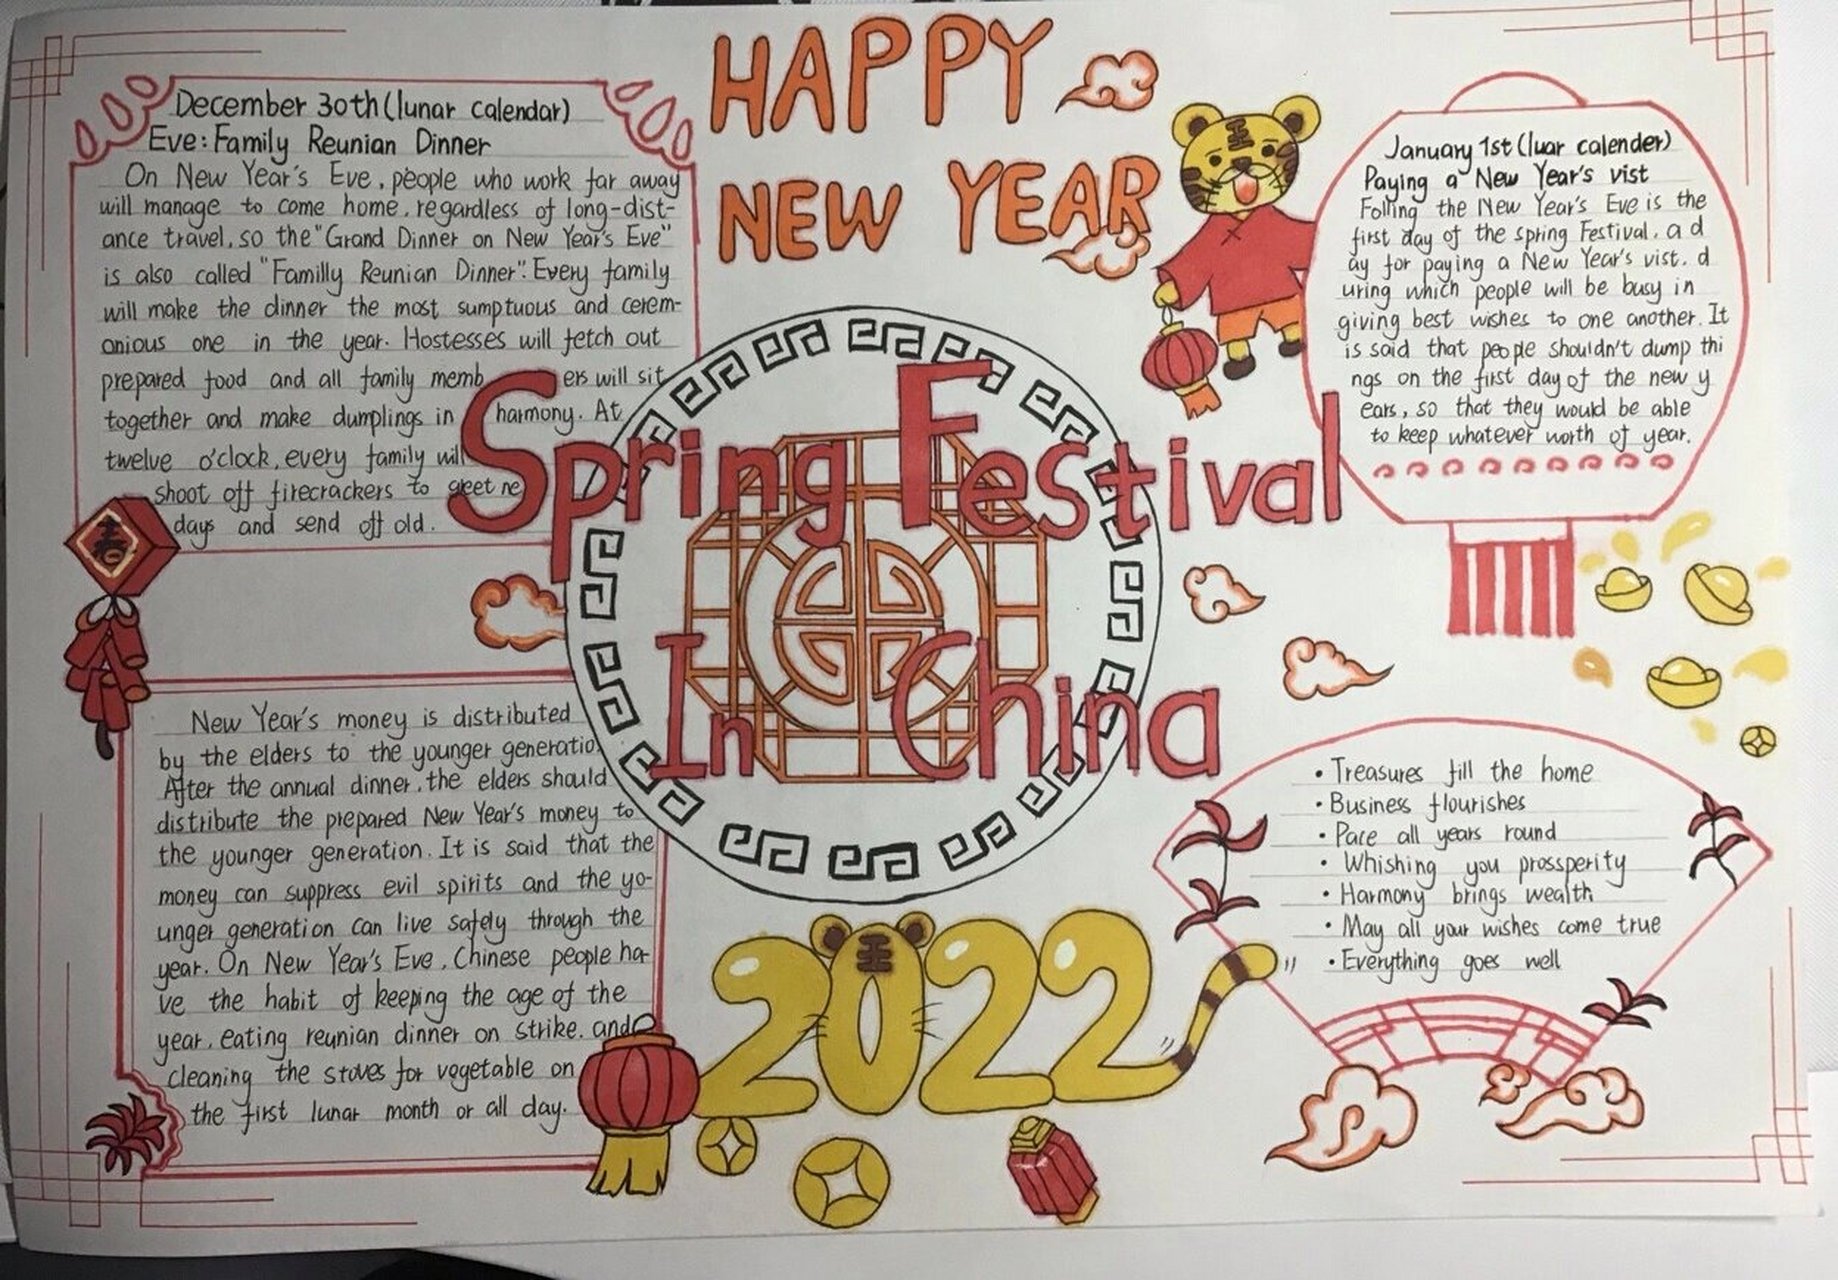 HAPPY
NEW YEAR
December 30th (lunar calendar)
Eve: Family Reunian Dinner
On New Year's Eve, people who work far away
will manage to come home, regardless of long-dist-
ance travel, so the "Grand Dinner on New Year's Eve"
is also called "Familly Reunian Dinner". Every family
will make the dinner the most sumptuous and cerem-
onious one in the year. Hostesses will fetch out
prepared food and all family memb ers will sit
together and make dumplings in harmony. At
twelve o'clock, every family will
shoot off firecrackers to greet ne
days and send off old.
春
Spring Festival
In China
January 1st (luar calender)
Paying a New Year's vist
Folling the New Year's Eve is the
first day of the spring Festival, a d
ay for paying a New Year's vist. d
uring which people will be busy in
giving best wishes to one another. It
is said that people shouldn't dump thi
ngs on the first day of the new y
ears, so that they would be able
to keep whatever worth of year.
New Year's money is distributed
by the elders to the younger generatio
After the annual dinner, the elders should
distribute the prepared New Year's money to
the younger generation. It is said that the
money can suppress evil spirits and the yo-
unger generation can live safely through the
year. On New Year's Eve, Chinese people ha-
ve the habit of keeping the age of the
year, eating reunian dinner on strike. and
cleaning the stoves for vegetable on
the first lunar month or all day.
• Treasures fill the home
• Business flourishes
• Pace all years round
• Whishing you prossperity
• Harmony brings wealth
• May all your wishes come true
• Everything goes well
2022